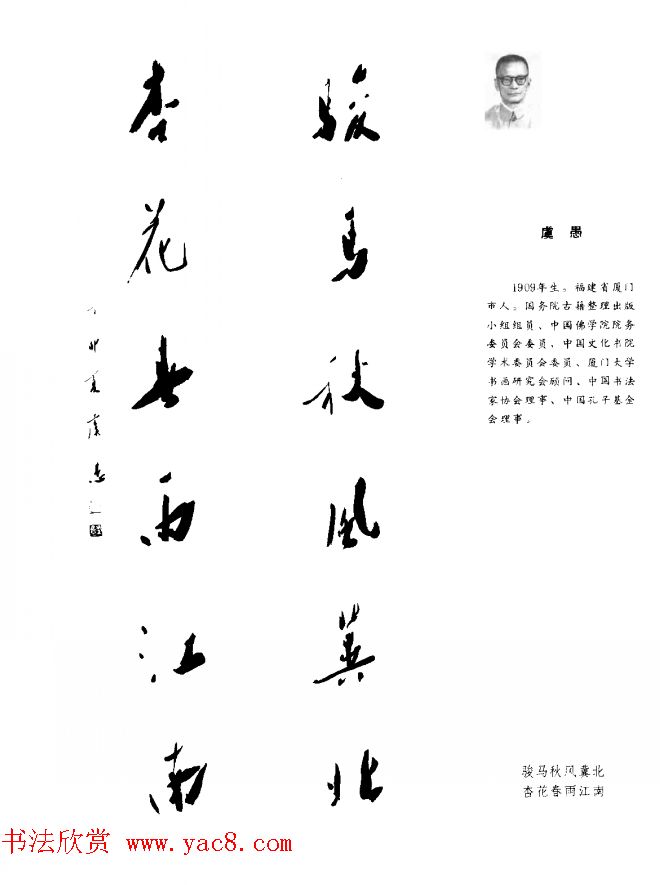 駿馬秋風冀北
杏花春雨江南
丁卯夏虞愚
虞愚
1909年生。福建省厦门
市人。国务院古籍整理出版
小组组员、中国佛学院院务
委员会委员、中国文化书院
学术委员会委员、厦门大学
书画研究会顾问、中国书法
家协会理事、中国孔子基金
会理事。
骏马秋风冀北
杏花春雨江南
书法欣赏 www.yac8.com